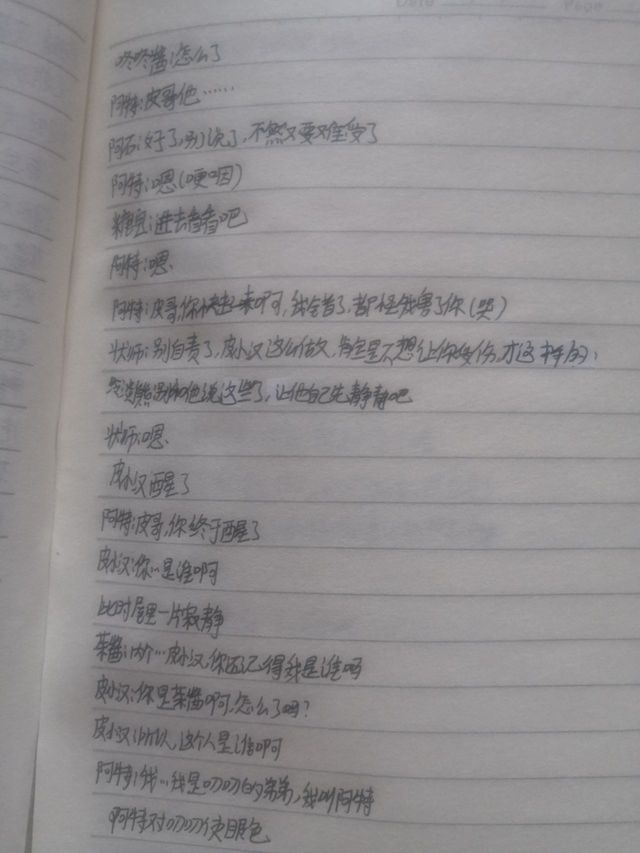 咚咚酱:怎么了
阿特:皮哥他……
阿石:好了,别说了,不然又要难受了
阿特:嗯(哽咽)
糖豆:进去看看吧
阿特:嗯
阿特:皮哥,你快起来啊,我令首了,都怪我害了你(哭)
状师:别自责了,皮小汉这么做,肯定是不想让你受伤,才这样的
别和他说这些了,让他自己先静静吧
状师:嗯
皮小汉醒了
阿特:皮哥,你终于醒了
皮小汉:你…是谁啊
此时屋里一片寂静
茶酱:内个…皮小汉,你还记得我是谁吗
皮小汉:你是茶酱啊,怎么了吗?
皮小汉:所以,这个人是谁啊
阿特:我…我是叨叨的弟弟,我叫阿特
阿特对叨叨使眼色